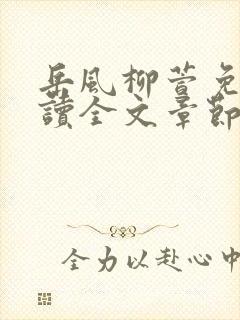 岳風柳萱免
讀全文章節
全力以赴心中